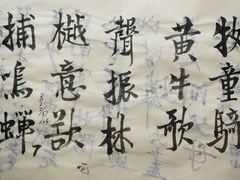 牧童騎
黃牛歌
聲振林
樾意欲
捕鳴蟬